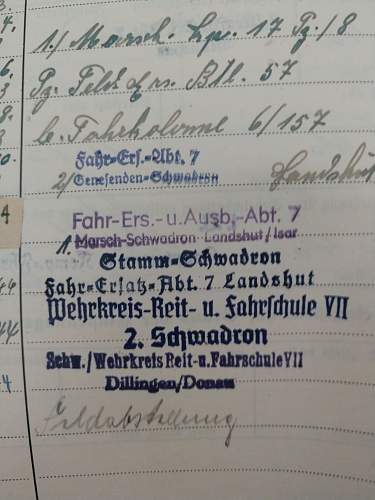 1./ Marsch. Kp. 17 Pz./8
Pz. Feld Ers. Btl. 57
l. Fahrkolonne 6/157
Fahr-Ers.-Abt. 7
2/ Genesenden-Schwadron Landshut
Fahr-Ers.-u.Ausb.-Abt. 7
1. Marsch-Schwadron Landshut/Isar
Stamm-Schwadron
Fahr-Ersatz-Abt. 7 Landshut
Wehrkreis-Reit- u. Fahrschule VII
2. Schwadron
Schw./Wehrkreis Reit-u.Fahrschule VII
Dillingen/Donau